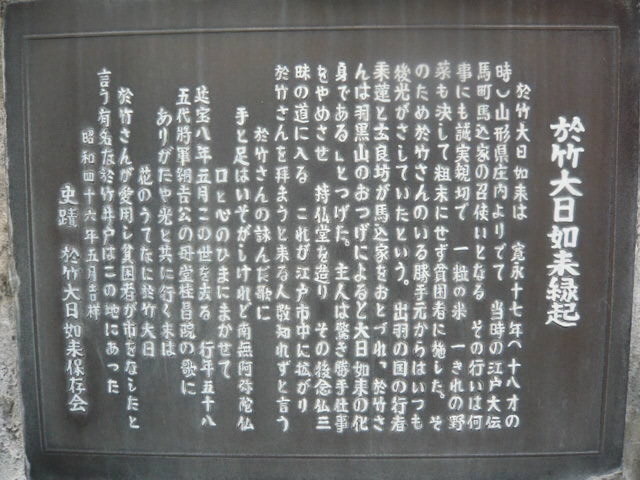 於竹大日如来縁起
於竹大日如来は　寛永十七年（十八才の
時）山形県庄内よりでて　当時の江戸大伝
馬町馬込家の召使いとなる　その行いは何
事にも誠実親切で　一粒の米　一きれの野
菜も決して粗末にせず貧困者に施した。そ
のため於竹さんのいる勝手元からはいつも
後光がさしていたという。出羽の国の行者
乗蓮と玄良坊が馬込家をおとづれ、於竹さ
んは羽黒山のおつげによると大日如来の化
身である」とつげた。主人は驚き勝手仕事
をやめさせ　持仏堂を造り　その後念仏三
昧の道に入る　これが江戸市中に拡がり
於竹さんを拝まうと来る人数知れずと言う
於竹さんの詠んだ歌に
手と足はいそがしけれど南無阿弥陀仏
口と心のひまにまかせて
延宝八年五月この世を去る　行年五十八
五代将軍綱吉公の母堂桂昌院の歌に
ありがたや光と共に行く末は
花のうてなに於竹大日
於竹さんが愛用し貧困者が市をなしたと
言う有名な於竹井戸はこの地にあった
昭和四十六年五月吉祥
史蹟　於竹大日如来保存会